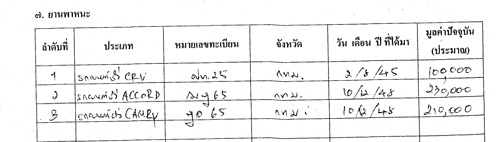 ๗. ยานพาหนะ
ลำดับที่ ประเภท หมายเลขทะเบียน จังหวัด วัน เดือน ปี ที่ได้มา มูลค่าปัจจุบัน (ประมาณ)
1 รถยนต์เก๋ง CRV 25 กทม. 2/8/45 100,000
2 รถยนต์เก๋ง ACCORD 65 กทม. 10/12/48 230,000
3 รถยนต์เก๋ง CAMRY 65 กทม. 10/12/48 210,000